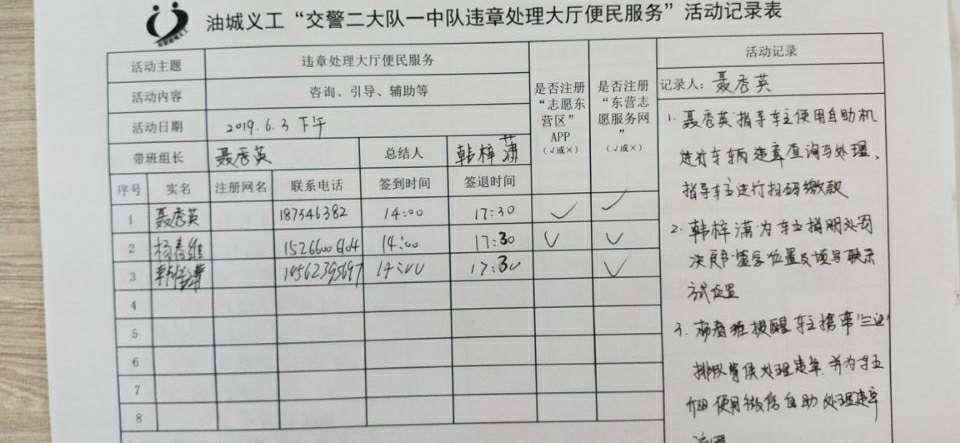 油城义工“交警二大队一中队违章处理大厅便民服务”活动记录表
活动主题 违章处理大厅便民服务
活动内容 咨询、引导、辅助等
活动日期 2019.6.3 下午
带班组长 聂秀英 总结人 韩梓潇
是否注册“志愿东营区”APP（√或×）
是否注册“东营志愿服务网”（√或×）
序号 实名 注册网名 联系电话 签到时间 签退时间
1 聂秀英 187546382 14:00 17:30 √ √
2 杨春维 14:00 17:30 √ √
3 14:00 17:30 √
4
5
6
7
8
活动记录
记录人：聂秀英
1. 聂秀英指导车主使用自助机
进行车辆违章查询与处理，
指导车主进行扫码缴款
2. 韩梓潇为车主指明处罚
决定书签字位置及填写联系
方式位置
3. 提醒车主携带“三证”
排队等候处理违章，并为车主
介绍使用微信自助处理违章